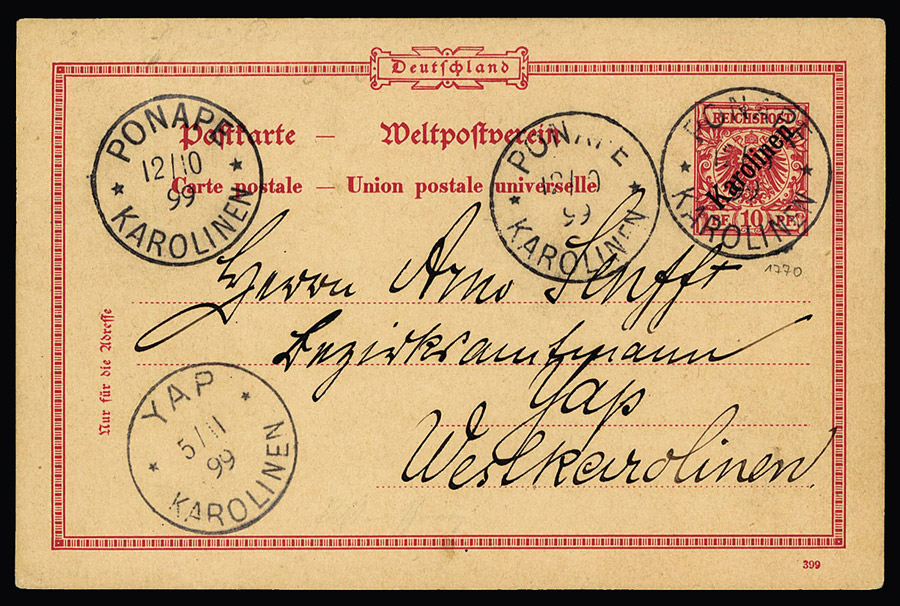 Deutschland
Postkarte — Weltpostverein
Carte postale — Union postale universelle
REICHSPOST
Karolinen
PF. 10 PF.
PONAPE
12/10
99
KAROLINEN
PONAPE
12/10
99
KAROLINEN
PONAPE
KAROLINEN
1270
Herrn Arno Senfft
Bezirksamtmann
Yap
Westkarolinen
Nur für die Adresse
YAP
5/11
99
KAROLINEN
399